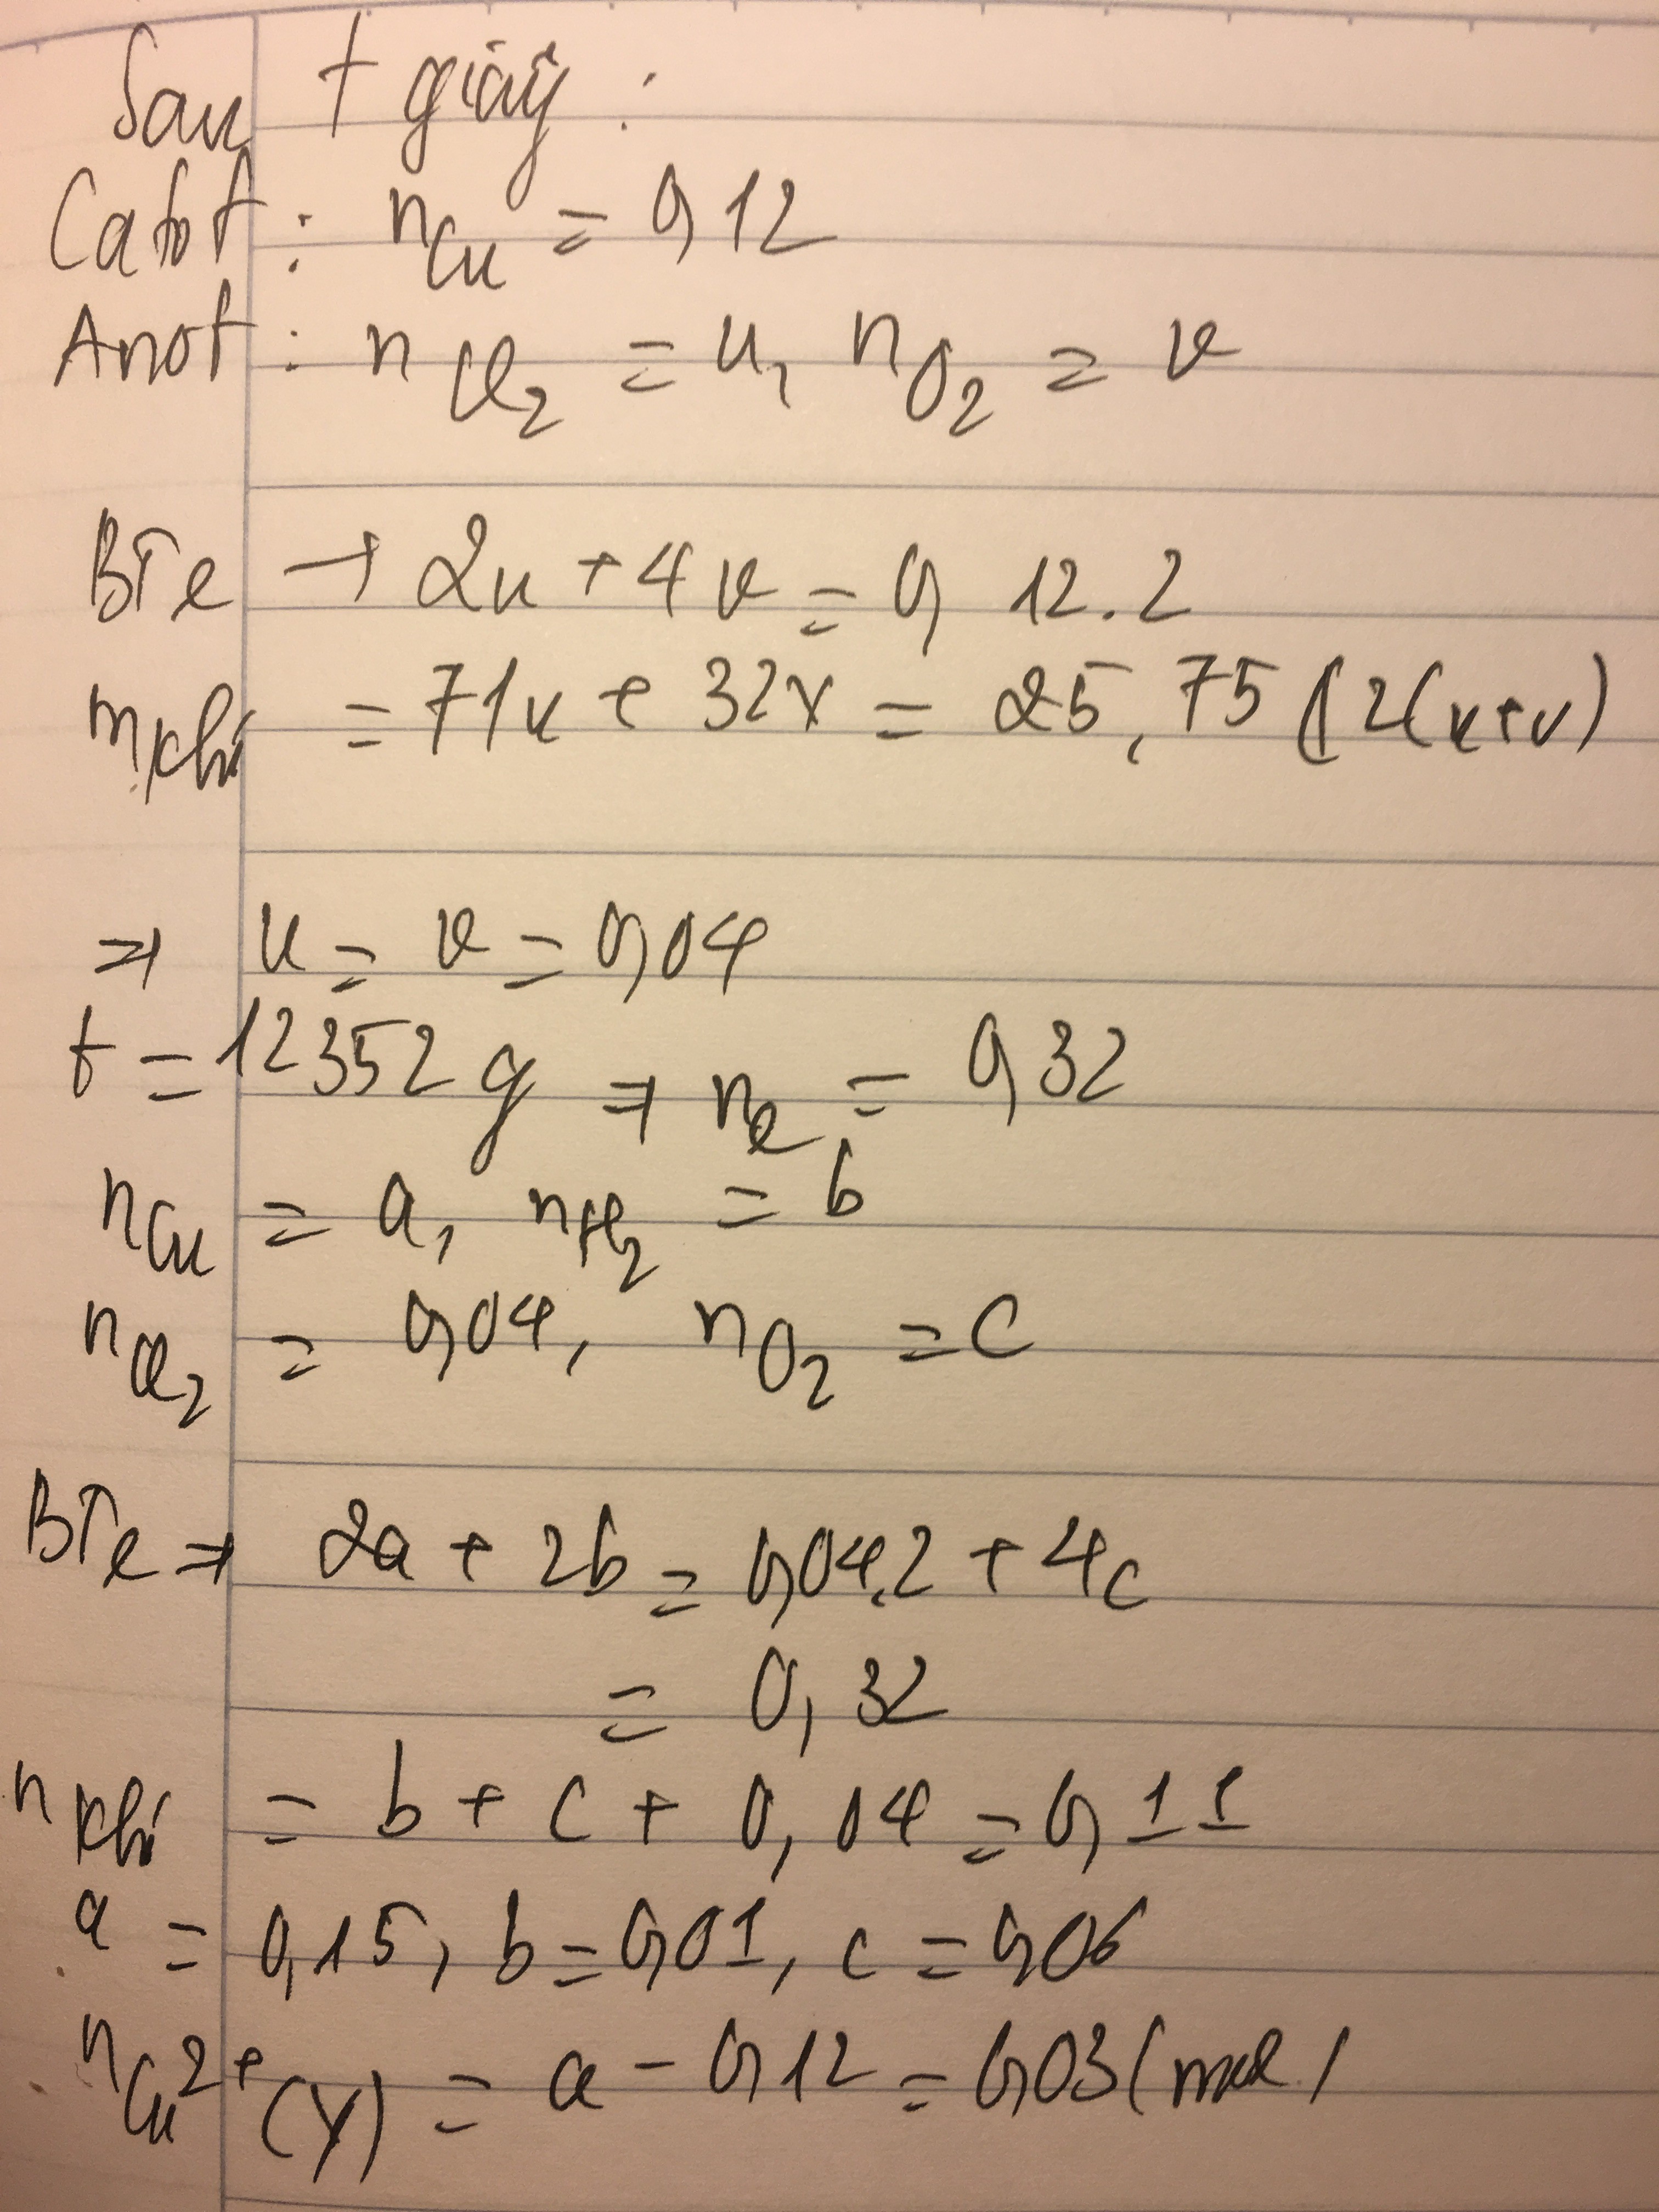 Sau t giây :
Catot : nCu = 0,12
Anot : nCl2 = u, nO2 = v
BTe → 2u + 4v = 0,12.2
mkhí = 71u + 32v = 25,75.2(u+v)
⇒ u = v = 0,04
t = 12352g ⇒ ne = 0,32
nCu = a, nH2 = b
nCl2 = 0,04, nO2 = c
BTe ⇒ 2a + 2b = 0,04.2 + 4c
= 0,32
nkhí = b + c + 0,04 = 0,11
a = 0,15, b = 0,01, c = 0,06
nCu2+ (Y) = a - 0,12 = 0,03 (mol)